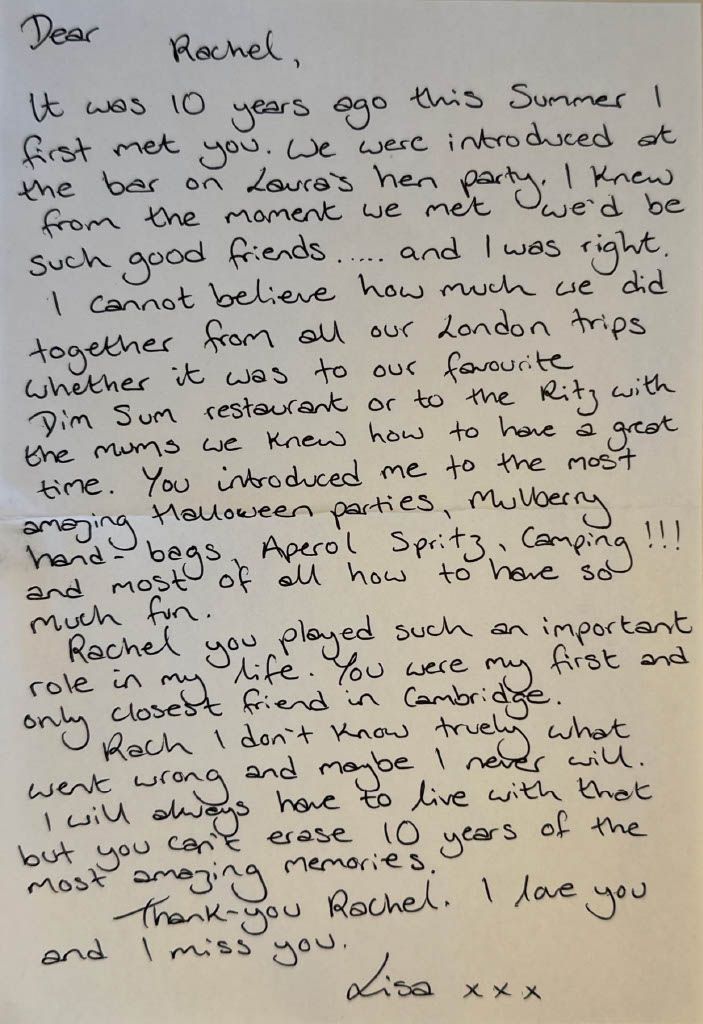 Dear Rachel,
It was 10 years ago this Summer I
first met you. We were introduced at
the bar on Laura's hen party. I knew
from the moment we met we'd be
such good friends..... and I was right.
I cannot believe how much we did
together from all our London trips
whether it was to our favourite
Dim Sum restaurant or to the Ritz with
the mums we knew how to have a great
time. You introduced me to the most
amazing Halloween parties, Mulberry
hand-bags, Aperol Spritz, Camping!!!
and most of all how to have so
much fun.
Rachel you played such an important
role in my life. You were my first and
only closest friend in Cambridge.
Rach I don't know truely what
went wrong and maybe I never will.
I will always have to live with that
but you can't erase 10 years of the
most amazing memories.
Thank-you Rachel. I love you
and I miss you.
Lisa xxx